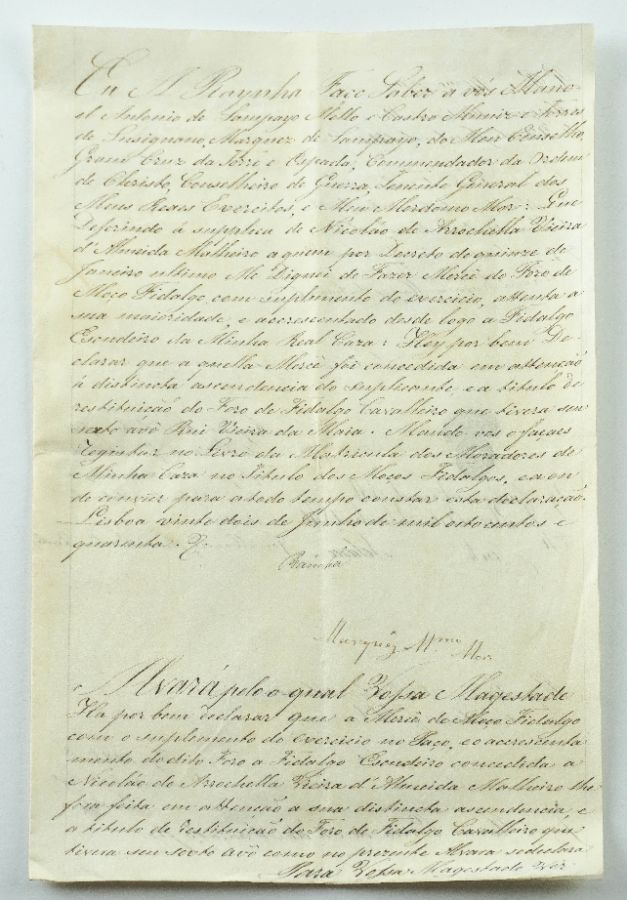 Eu A Raynha Faço Saber a vós Mano-
el Antonio de Sampayo Mello e Castro Moniz e Torres
de Lusignano, Marquez de Sampayo, do Meu Conselho,
Gram Cruz da Torre e Espada, Commendador da Ordem
de Christo, Conselheiro de Guerra, Tenente General dos
Meus Reaes Exercitos, e Meu Mordomo Mór: Que
Deferindo á suplica de Nicoláo de Arrochella Vieira
d'Almeida Malheiro a quem por Decreto de quinze de
Janeiro ultimo Me Dignei de Fazer Mercê do Foro de
Moço Fidalgo, com suplimento de exercicio, attenta a
sua maioridade, e acrescentado desde logo a Fidalgo
Escudeiro da Minha Real Caza: Hey por bem De-
clarar que a quella Mercê foi concedida em attenção
á distincta ascendencia do suplicante, e a titulo de
restituição do Foro de Fidalgo Cavalleiro que tivera seu
sexto avô Rui Vieira da Mara. Mando-vos o façaes
registar no Livro da Matricula dos Moradores de
Minha Caza no Titulo dos Moços Fidalgos, e a on-
de convier para a todo tempo constar esta declaração.
Lisboa vinte dois de Junho de mil oito centos e
quarenta.
Rainha
Marquêz Mmo Mor
Alvará pelo qual Vossa Magestade
Ha por bem declarar que a Mercê de Moço Fidalgo
com o suplemento do exercicio no Paço, e o acrescenta
mento do dito Foro a Fidalgo Escudeiro concedida a
Nicoláo de Arrochella Vieira d'Almeida Malheiro lhe
fora feita em attenção a sua distincta ascendencia, e
a titulo de restituição do Foro de Fidalgo Cavalleiro que
tivera seu sexto avô como no prezente Alvara se declara
Para Vossa Magestade Ver